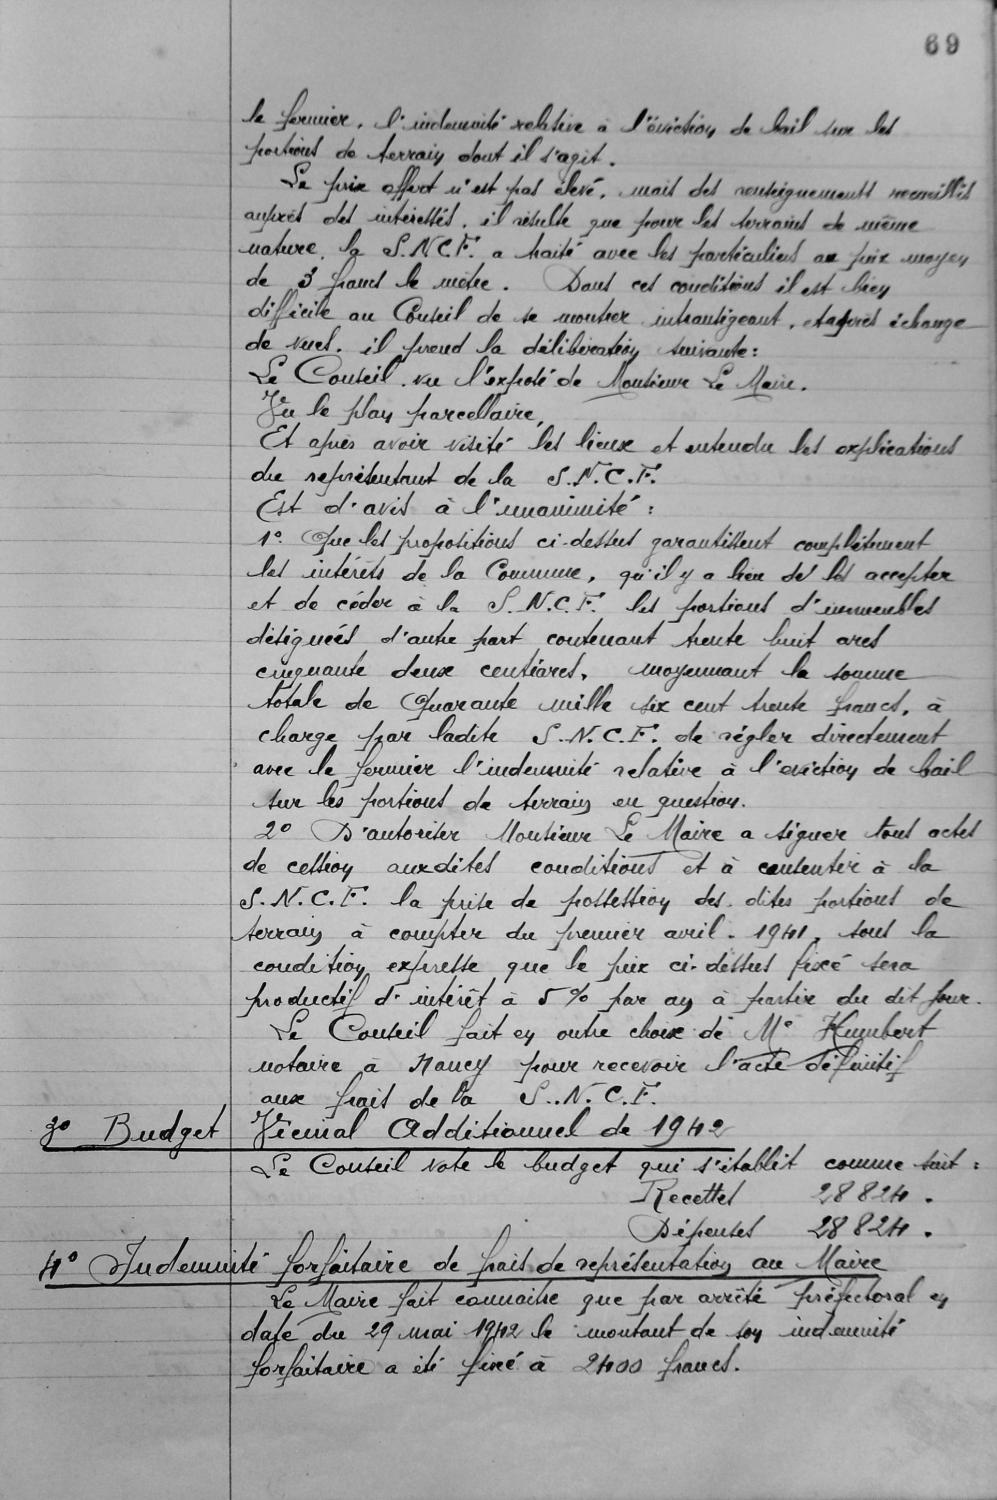 69
le fermier, l'indemnité relative à l'éviction de bail sur les
portions de terrain dont il s'agit.
Le prix offert n'est pas élevé, mais des renseignements recueillis
auprès des intéressés, il résulte que pour les terrains de même
nature, la S.N.C.F. a traité avec les particuliers au prix moyen
de 3 francs le mètre. Dans ces conditions il est bien
difficile au Conseil de se montrer intransigeant, et après échange
de vues, il prend la délibération suivante :
Le Conseil, vu l'exposé de Monsieur Le Maire.
Vu le plan parcellaire,
Et après avoir visité les lieux et entendu les explications
du représentant de la S.N.C.F.
Est d'avis à l'unanimité :
1° Que les propositions ci-dessus garantissent complètement
les intérêts de la Commune, qu'il y a lieu de les accepter
et de céder à la S.N.C.F. les portions d'immeubles
désignées d'autre part contenant trente huit ares
cinquante deux centiares, moyennant la somme
totale de Quarante mille six cent trente francs, à
charge par ladite S.N.C.F. de régler directement
avec le fermier l'indemnité relative à l'eviction de bail
sur les portions de terrain en question.
2° D'autoriser Monsieur Le Maire a signer tous actes
de cession auxdites conditions et à consentir à la
S.N.C.F. la prise de possession des dites portions de
terrain à compter du premier avril 1941, sous la
condition expresse que le prix ci-dessus fixé sera
productif d'intérêt à 5% par an à partir du dit jour.
Le Conseil fait en outre choix de Me Humbert
notaire à Nancy pour recevoir l'acte définitif
aux frais de la S.N.C.F.
3° Budget Vicinal Additionnel de 1942
Le Conseil vote le budget qui s'établit comme suit :
Recettes 28824.
Dépenses 28824.
4° Indemnité forfaitaire de frais de représentation au Maire
Le Maire fait connaître que par arrêté préfectoral en
date du 29 mai 1942 le montant de son indemnité
forfaitaire a été fixé à 2400 francs.